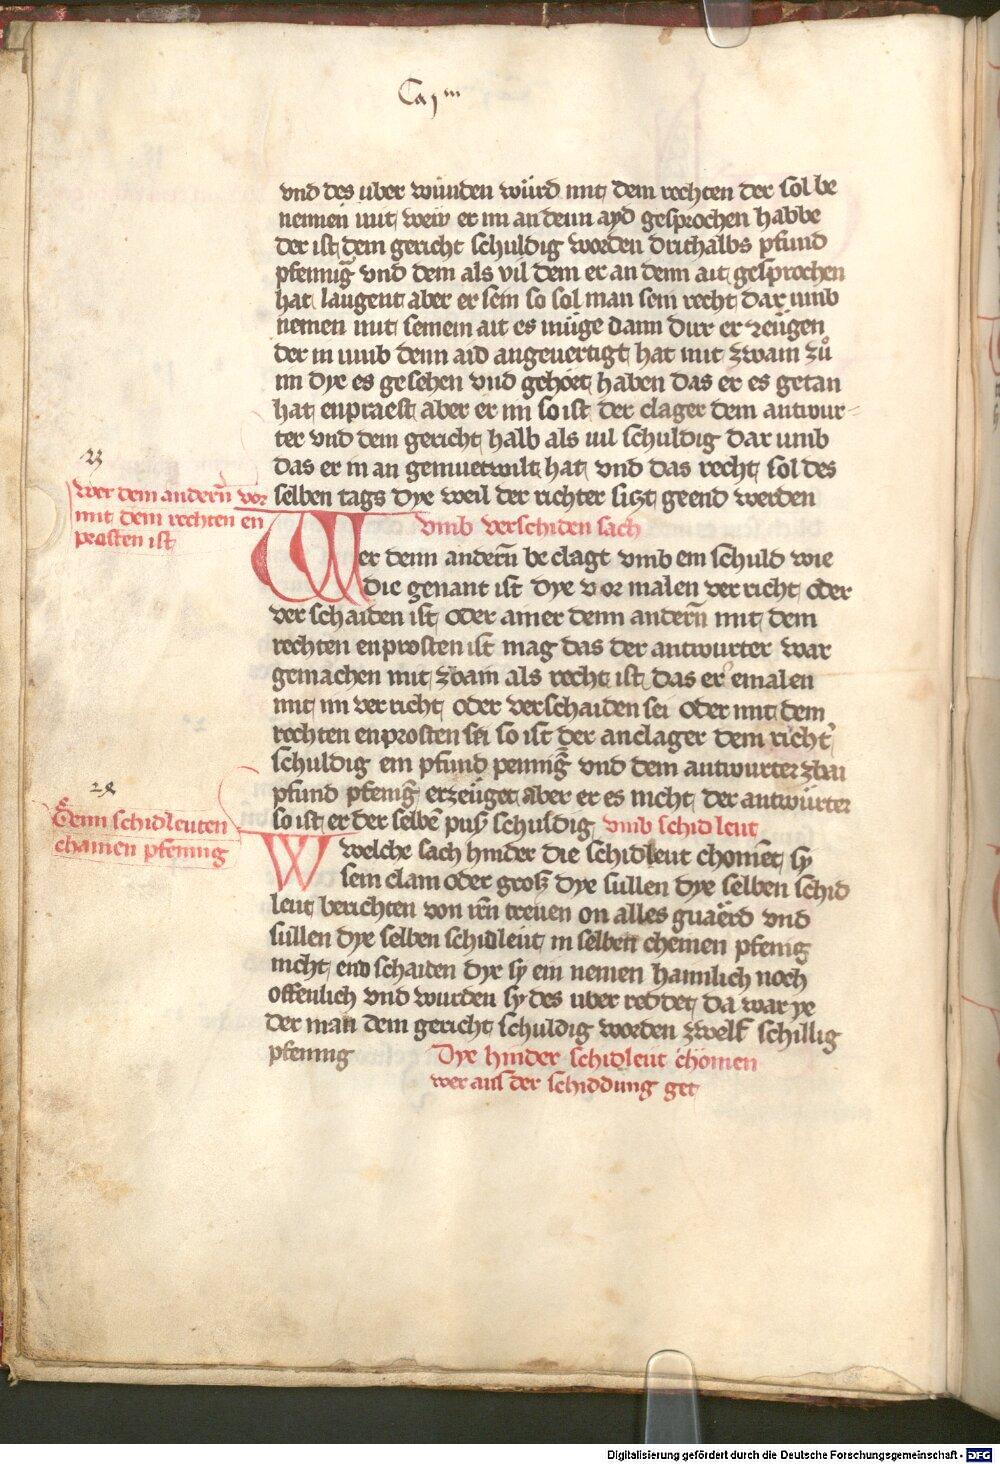 Caj m
vnd des uber wunden würd mit dem rechten der sol be
nennen mit weiv er im an denn ayd gesprochen habbe
der ist dem gericht schuldig worden drithalbs pfund
pfennig̃ vnd dem als vil dem er an denn ait gesprochen
hat laugent aber er sein so sol man sein recht dar umb
nemen mit seinem ait es müge dann dirr er zeügen
der in umb denn aid angeuertigt hat mit zwain zů
im dye es gesehen vnd gehört haben das er es getan
hat enpraest aber er im so ist der clager dem antwur-
ter vnd dem gericht halb als uil schuldig dar umb
das er in an gemuetwilt hat vnd das recht sol des
selben tags dye weil der richter sizt geend werden
23
wer dem anderñ vor
mit dem rechten en
prosten ist
vmb verschiden sach
Wer denn anderñ be clagt vmb ein schuld wie
die genant ist dye vor malen ver richt oder
ver schaiden ist oder ainer denn anderñ mit dem
rechten enprosten ist mag das der antwurter war
gemachen mit zbain als recht ist das er emalen
mit im ver richt oder verschaiden sei oder mit dem
rechten enprosten sei so ist der anclager dem richt
schuldig ein pfund pennig̃ vnd dem antwurter zbai
pfund pfenig̃ erzeüget aber er es nicht der antwürter
so ist er der selbẽ pusz schuldig vmb schidleut
24
Denn schidleuten
chainen pfennig
Welche sach hinder die schidleut chomet sy
sein clain oder grosz dye sullen dye selben schid
leut berichten von irñ treuen on alles guaerd vnd
sullen dye selben schidleut in selben chainen pfenig
nicht end schaiden dye sy ein nemen haimlich noch
offenlich vnd wurden sy des uber redtet da war ye
der man dem gericht schuldig worden zwelf schillig
pfennig
Dye hinder schidleut chomen
wer aus der schiddung get
Digitalisierung gefördert durch die Deutsche Forschungsgemeinschaft - DFG